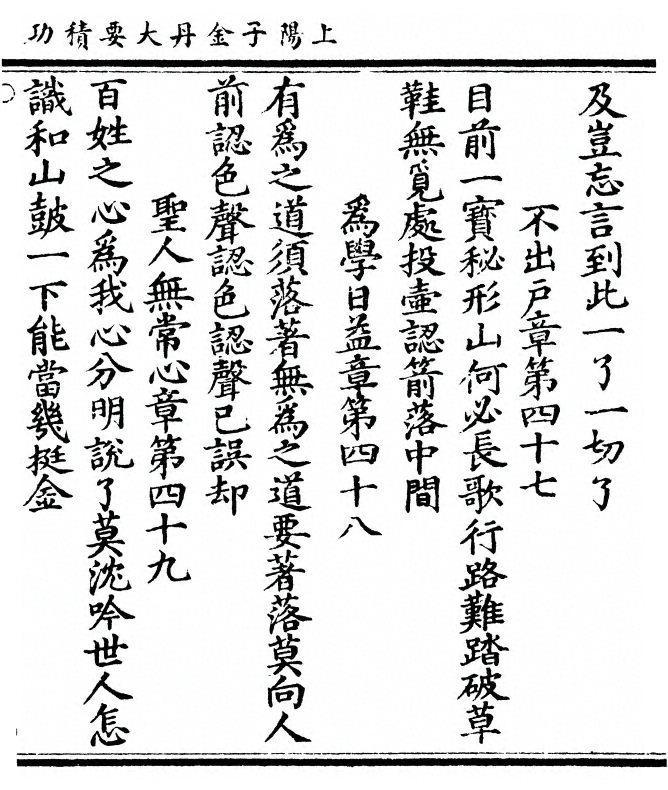 上陽子金丹大要積功
及豈忘言到此一了一切了
不出戶章第四十七
目前一寶秘形山何必長歌行路難踏破草
鞋無覓處投壷認箭落中間
為學日益章第四十八
有為之道須落著無為之道要著落莫向人
前認色聲認色認聲已誤却
聖人無常心章第四十九
百姓之心為我心分明說了莫沈吟世人怎
識和山皷一下能當幾挺金